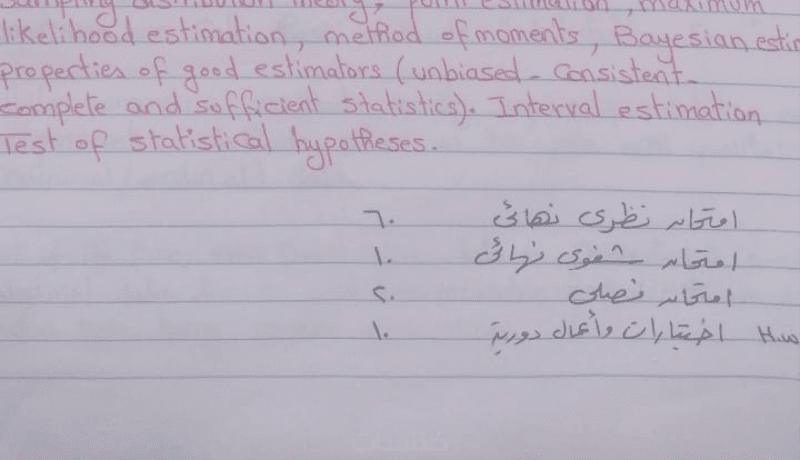 sampling distribution theory, point estimation, maximum
likelihood estimation, method of moments, Bayesian estim
properties of good estimators (unbiased - Consistent -
complete and sufficient statistics). Interval estimation
Test of statistical hypotheses.
امتحان نظرى نهائى ٦٠
امتحان شفوى نهائى ١٠
امتحان فصلى ٢٠
H.w اختبارات وأعمال دورية ١٠